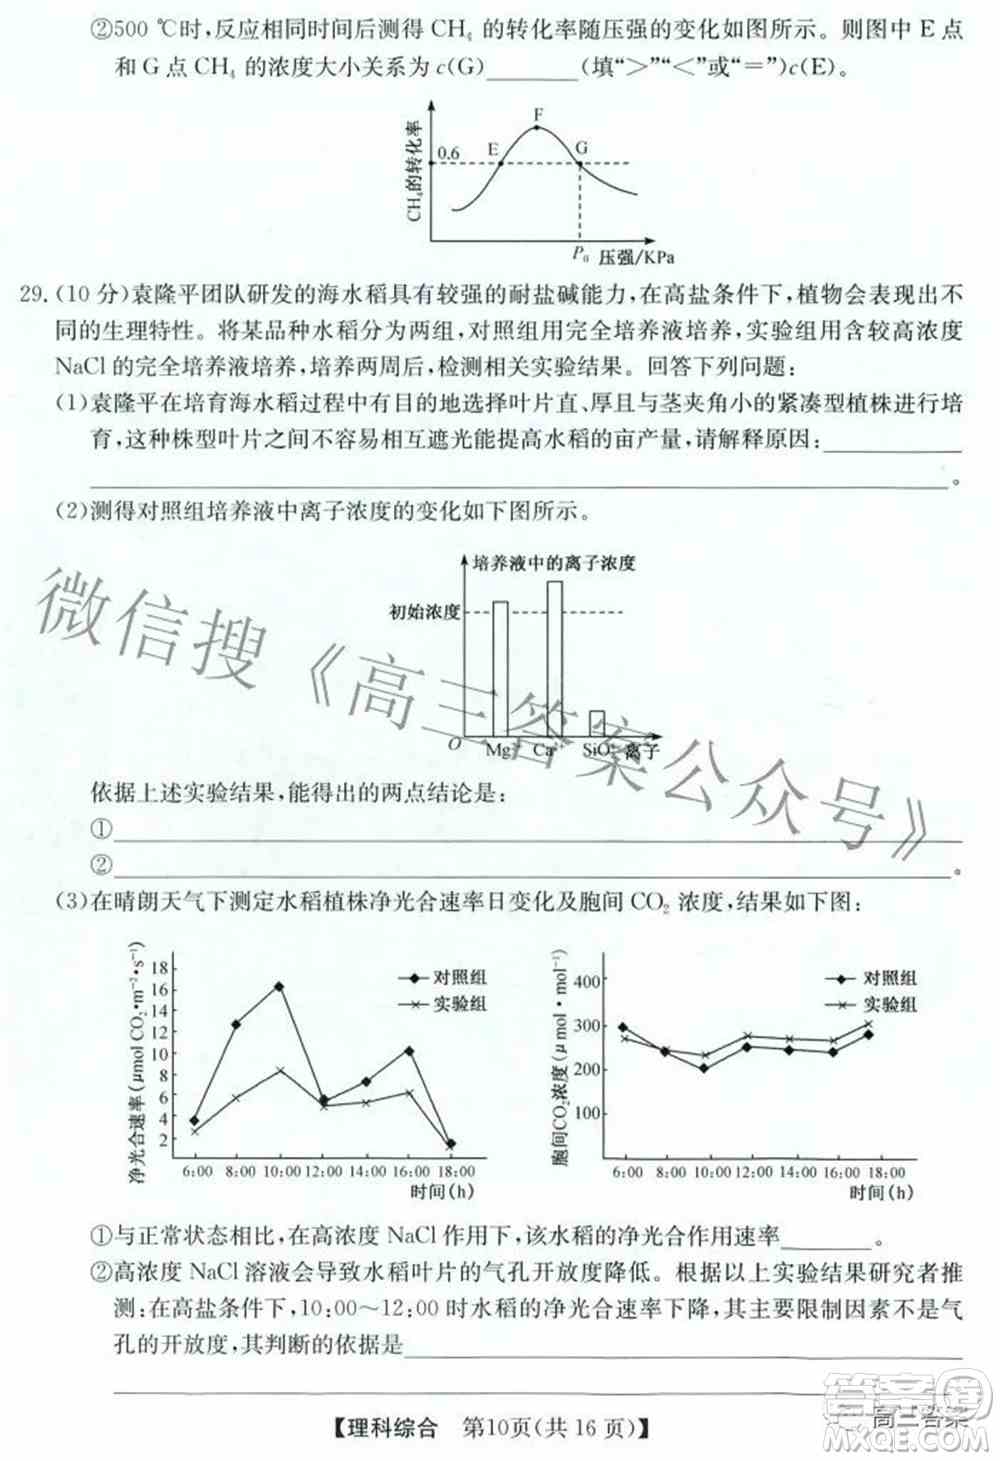 ②500 ℃时,反应相同时间后测得CH₄的转化率随压强的变化如图所示。则图中E点
和G点CH₄的浓度大小关系为c(G)________(填“>”“<”或“=”)c(E)。
CH₄的转化率
0.6
E
F
G
P₀ 压强/KPa
29.(10分)袁隆平团队研发的海水稻具有较强的耐盐碱能力,在高盐条件下,植物会表现出不
同的生理特性。将某品种水稻分为两组,对照组用完全培养液培养,实验组用含较高浓度
NaCl的完全培养液培养,培养两周后,检测相关实验结果。回答下列问题:
(1)袁隆平在培育海水稻过程中有目的地选择叶片直、厚且与茎夹角小的紧凑型植株进行培
育,这种株型叶片之间不容易相互遮光能提高水稻的亩产量,请解释原因:____________
________________________________________________。
(2)测得对照组培养液中离子浓度的变化如下图所示。
培养液中的离子浓度
初始浓度
O Mg²⁺ Ca²⁺ SiO 离子
依据上述实验结果,能得出的两点结论是:
①________________________________________________
②________________________________________________。
(3)在晴朗天气下测定水稻植株净光合速率日变化及胞间CO₂浓度,结果如下图:
净光合速率(μmol CO₂·m⁻²·s⁻¹)
18
16
14
12
10
8
6
4
2
对照组
实验组
6:00 8:00 10:00 12:00 14:00 16:00 18:00
时间(h)
胞间CO₂浓度(μmol·mol⁻¹)
400
300
200
100
对照组
实验组
6:00 8:00 10:00 12:00 14:00 16:00 18:00
时间(h)
①与正常状态相比,在高浓度NaCl作用下,该水稻的净光合作用速率________。
②高浓度NaCl溶液会导致水稻叶片的气孔开放度降低。根据以上实验结果研究者推
测:在高盐条件下,10:00～12:00时水稻的净光合速率下降,其主要限制因素不是气
孔的开放度,其判断的依据是________________________________
________________________________________________
【理科综合 第10页(共16页)】
微信搜《高三答案公众号》
高三答案
答案圈
MXQE.COM